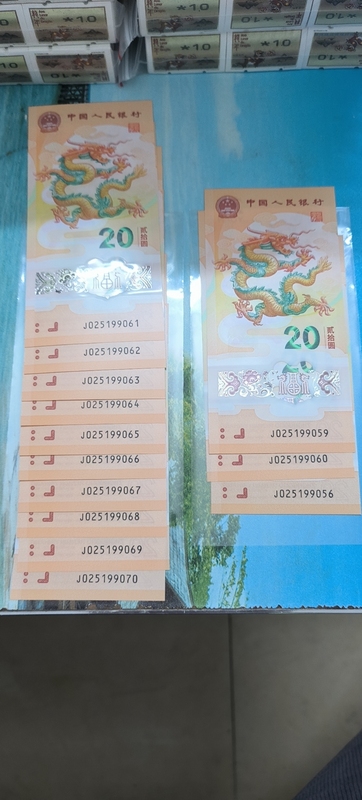 中国人民银行
20
贰拾圆
J025199061
J025199062
J025199063
J025199064
J025199065
J025199066
J025199067
J025199068
J025199069
J025199070
中国人民银行
20
贰拾圆
J025199059
J025199060
J025199056